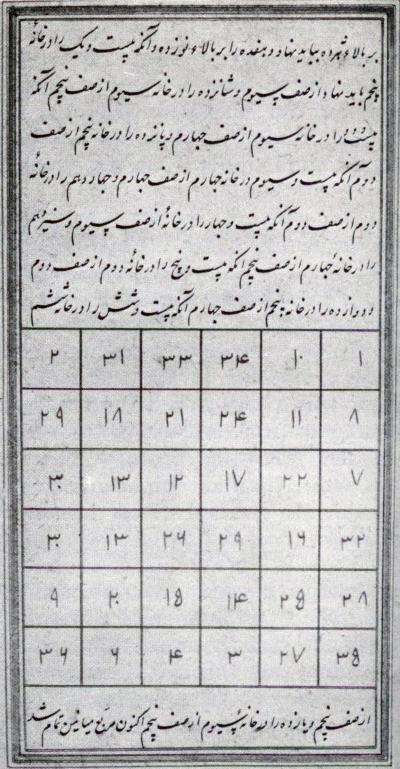 بر بالاء شهرده بباید نهاد و هفده را بر بالاء نوزده و آنگه بیست و یک را در خانهٔ
پنجم باید نهاد از صف سیوم و شانزده را در خانه سیوم از صف پنجم آنگه
را در خانه سیوم از صف چهارم و پانزده را در خانه پنجم از صف
دوم آنگه بیست و سیوم در خانه چهارم از صف چهارم و چهاردهم را در خانهٔ
دوم از صف دوم آنگه بیست و چهار را در خانهٔ از صف سیوم و سیزدهم
را در خانه چهارم از صف پنجم آنگه بیست و پنج را در خانهٔ دوم از صف دوم
و دوازده را در خانه پنجم از صف چهارم آنگه بیست و شش را در خانه ششم
۱ ۱۰ ۳۴ ۳۳ ۳۱ ۲
۸ ۱۱ ۲۴ ۲۱ ۱۸ ۲۹
۷ ۲۲ ۱۷ ۱۲ ۱۳ ۳۰
۳۲ ۱۶ ۲۹ ۲۶ ۱۳ ۳۰
۲۸ ۲۵ ۱۴ ۱۵ ۲۰ ۹
۳۵ ۲۷ ۳ ۴ ۶ ۳۶
از صف پنجم و یازده را در خانه سیوم از صف پنجم اکنون مربع میانین تمام شد